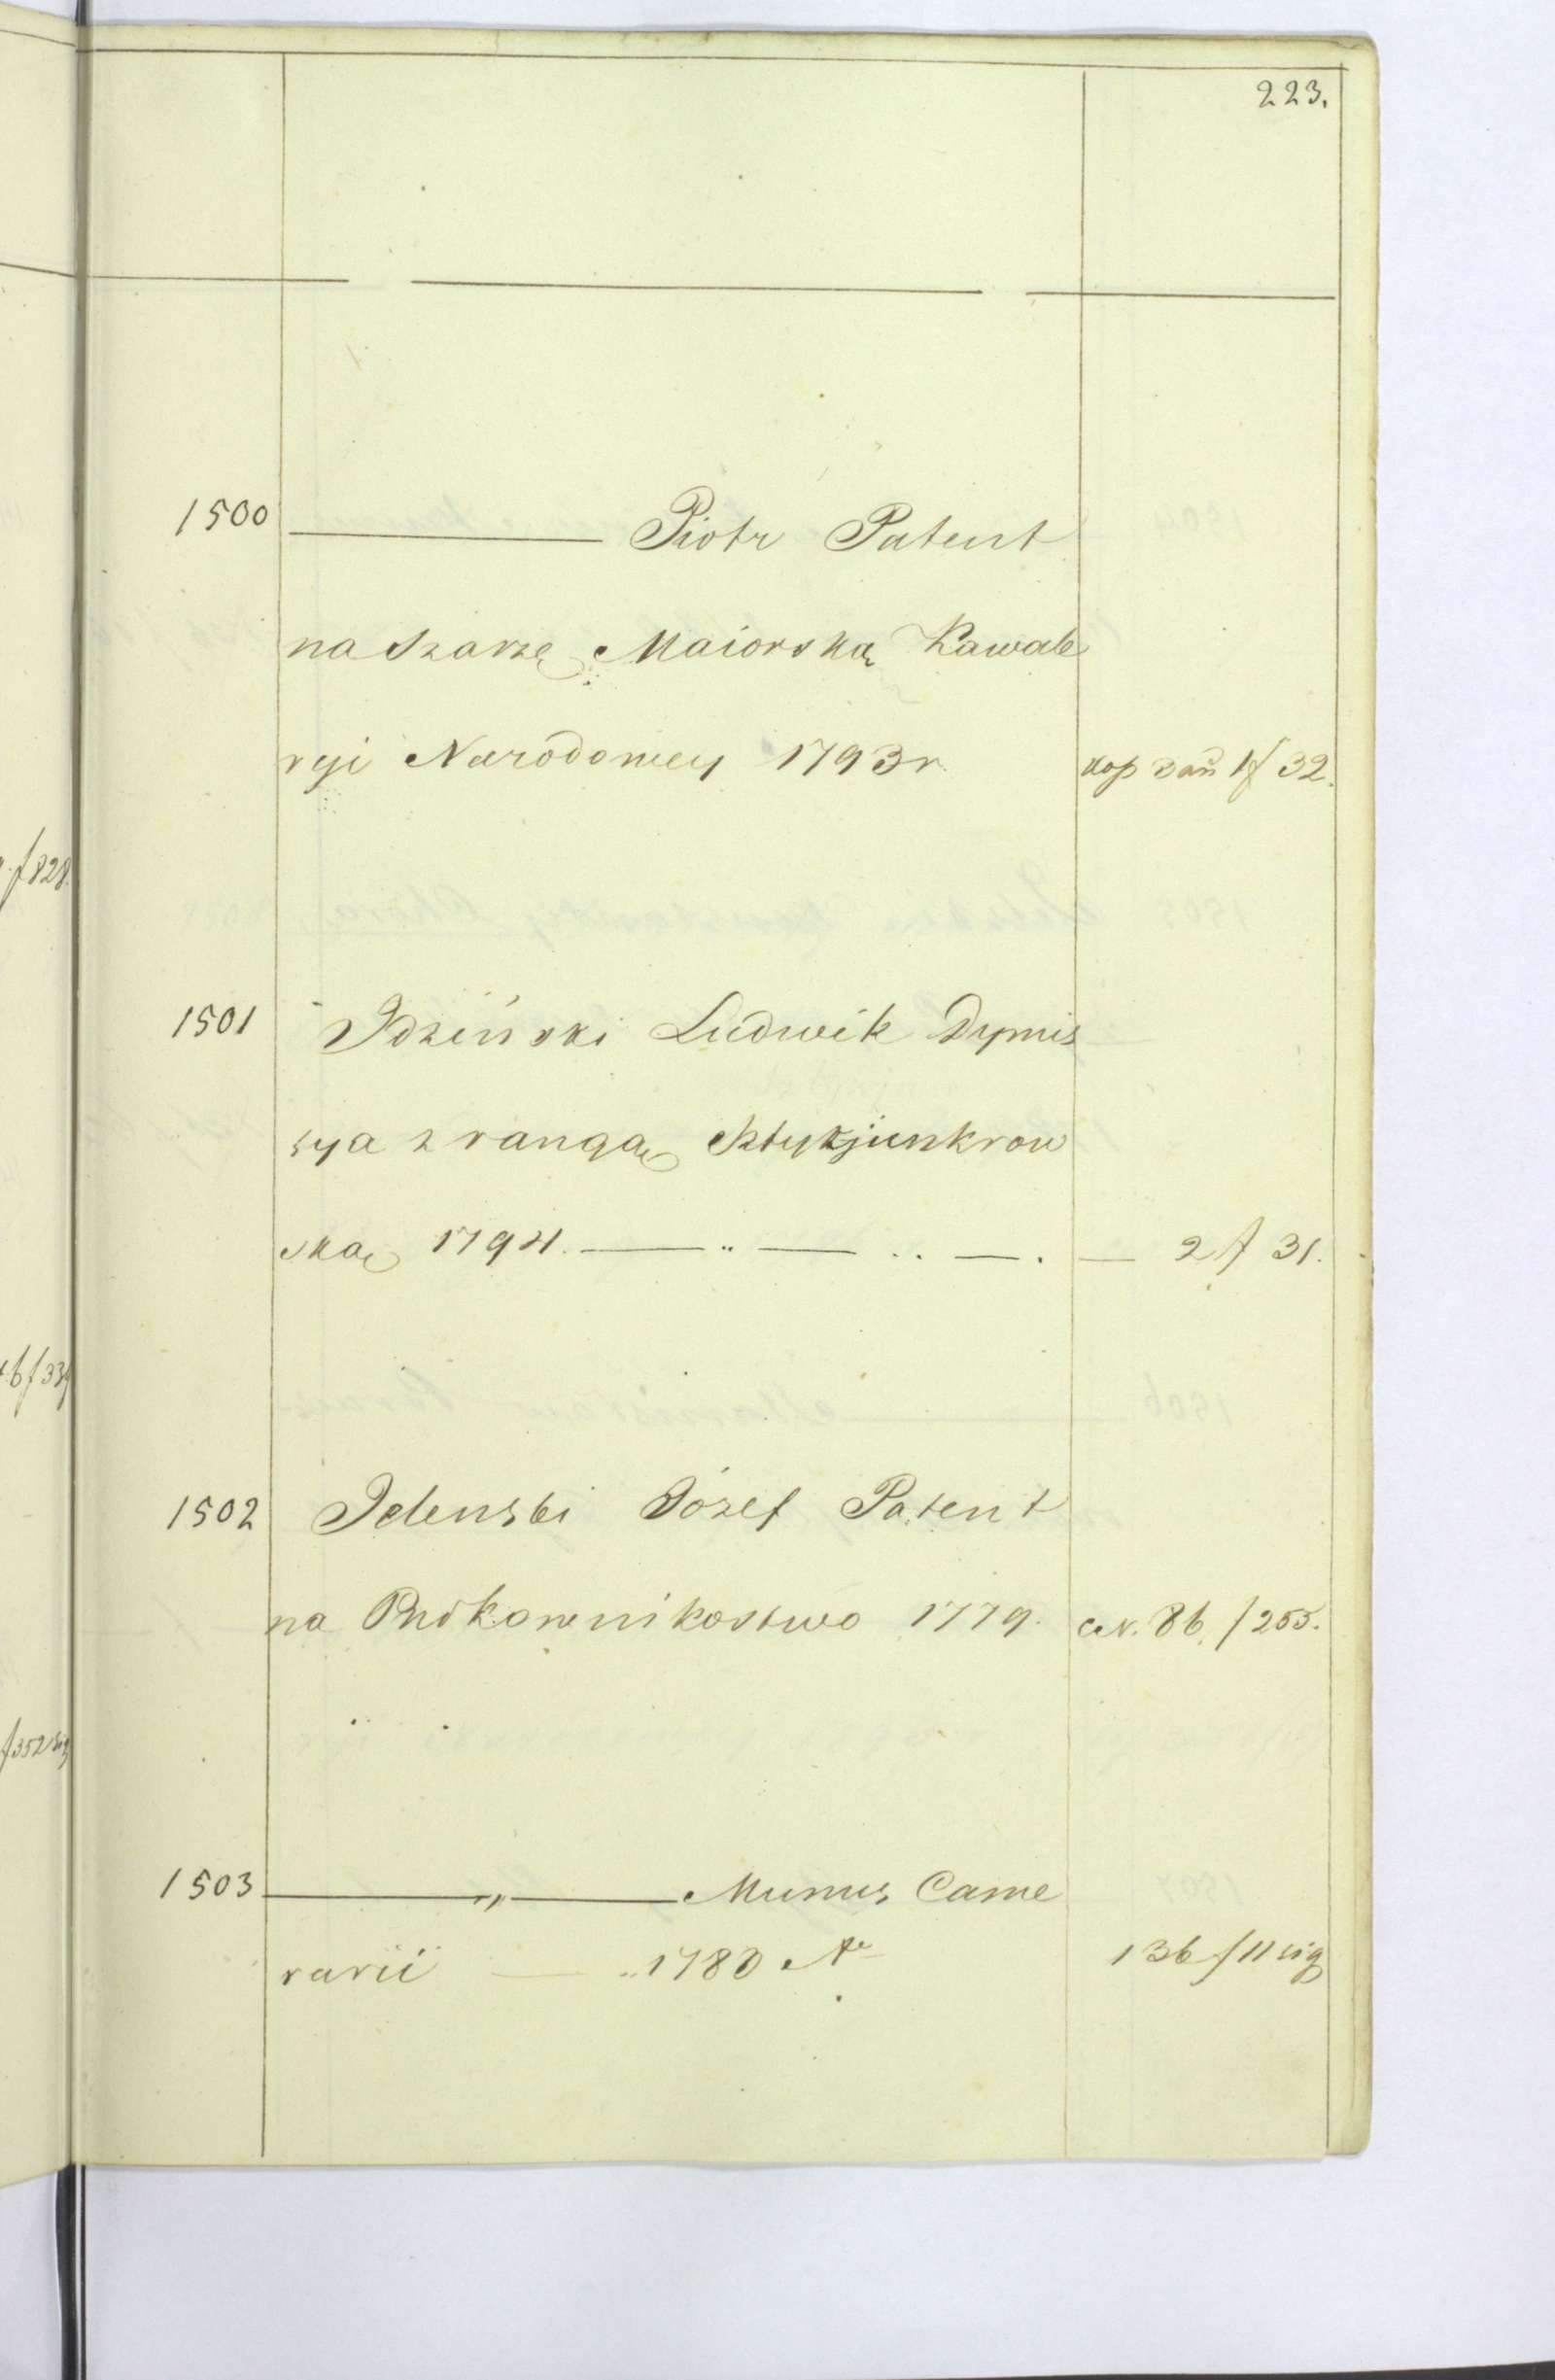 223.
1500 ——— Piotr Patent
na Szarżę Maiorską Kawale
ryi Narodowey 1793 r. kop 3 an 1 f 32.
1501 Idziński Ludwik Dymis
sya z rangą Sztykjunkrow
ską 1794. — „ — .. — . — 2 f 31.
1502 Jelenski Józef Patent
na Pułkownikostwo 1779. 86. f 255.
1503 ——— „ ——— Munus Came
rarii — „ 1780 136 f 11 sig
f 828.
6 f 339
f 352 sig